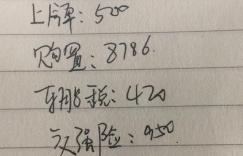 上牌: 500
购置: 8786.
车船税: 420
交强险: 950.